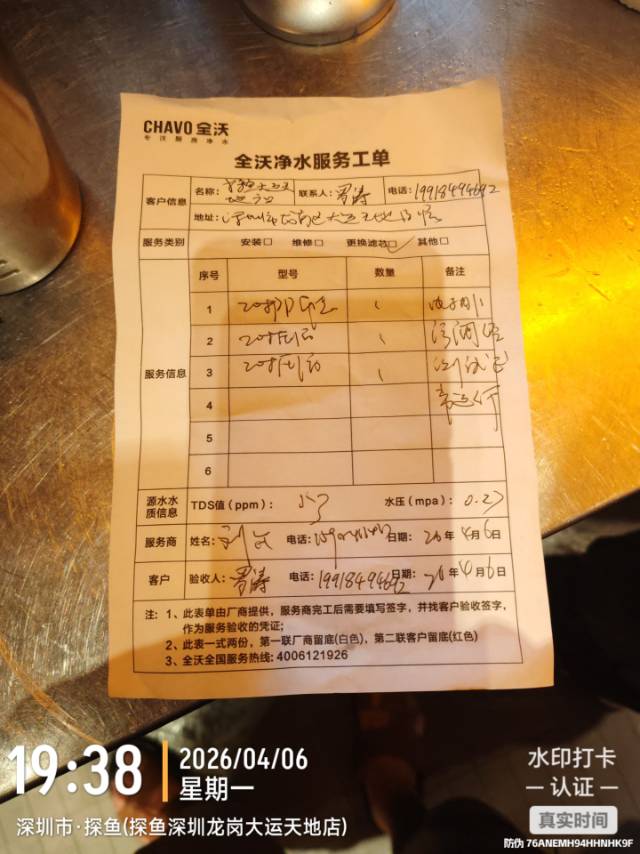 CHAVO 全沃
专注厨房净水
全沃净水服务工单
客户信息 名称: 探鱼大运天地店 联系人: 罗涛 电话: 19918494692
地址: 深圳市龙岗区大运天地
服务类别 安装□ 维修□ 更换滤芯□✓ 其他□
序号 型号 数量 备注
服务信息
1
2
3
4
5
6
源水水质信息 TDS值(ppm): 水压(mpa): 0.27
服务商 姓名: 电话: 日期: 26年4月6日
客户 验收人: 罗涛 电话: 19918494692 日期: 26年4月6日
注: 1、此表单由厂商提供，服务商完工后需要填写签字，并找客户验收签字，
作为服务验收的凭证;
2、此表一式两份，第一联厂商留底(白色)，第二联客户留底(红色)
3、全沃全国服务热线: 4006121926
19:38
2026/04/06
星期一
深圳市·探鱼(探鱼深圳龙岗大运天地店)
水印打卡
认证
真实时间
防伪 76ANEMH94HHNHK9F